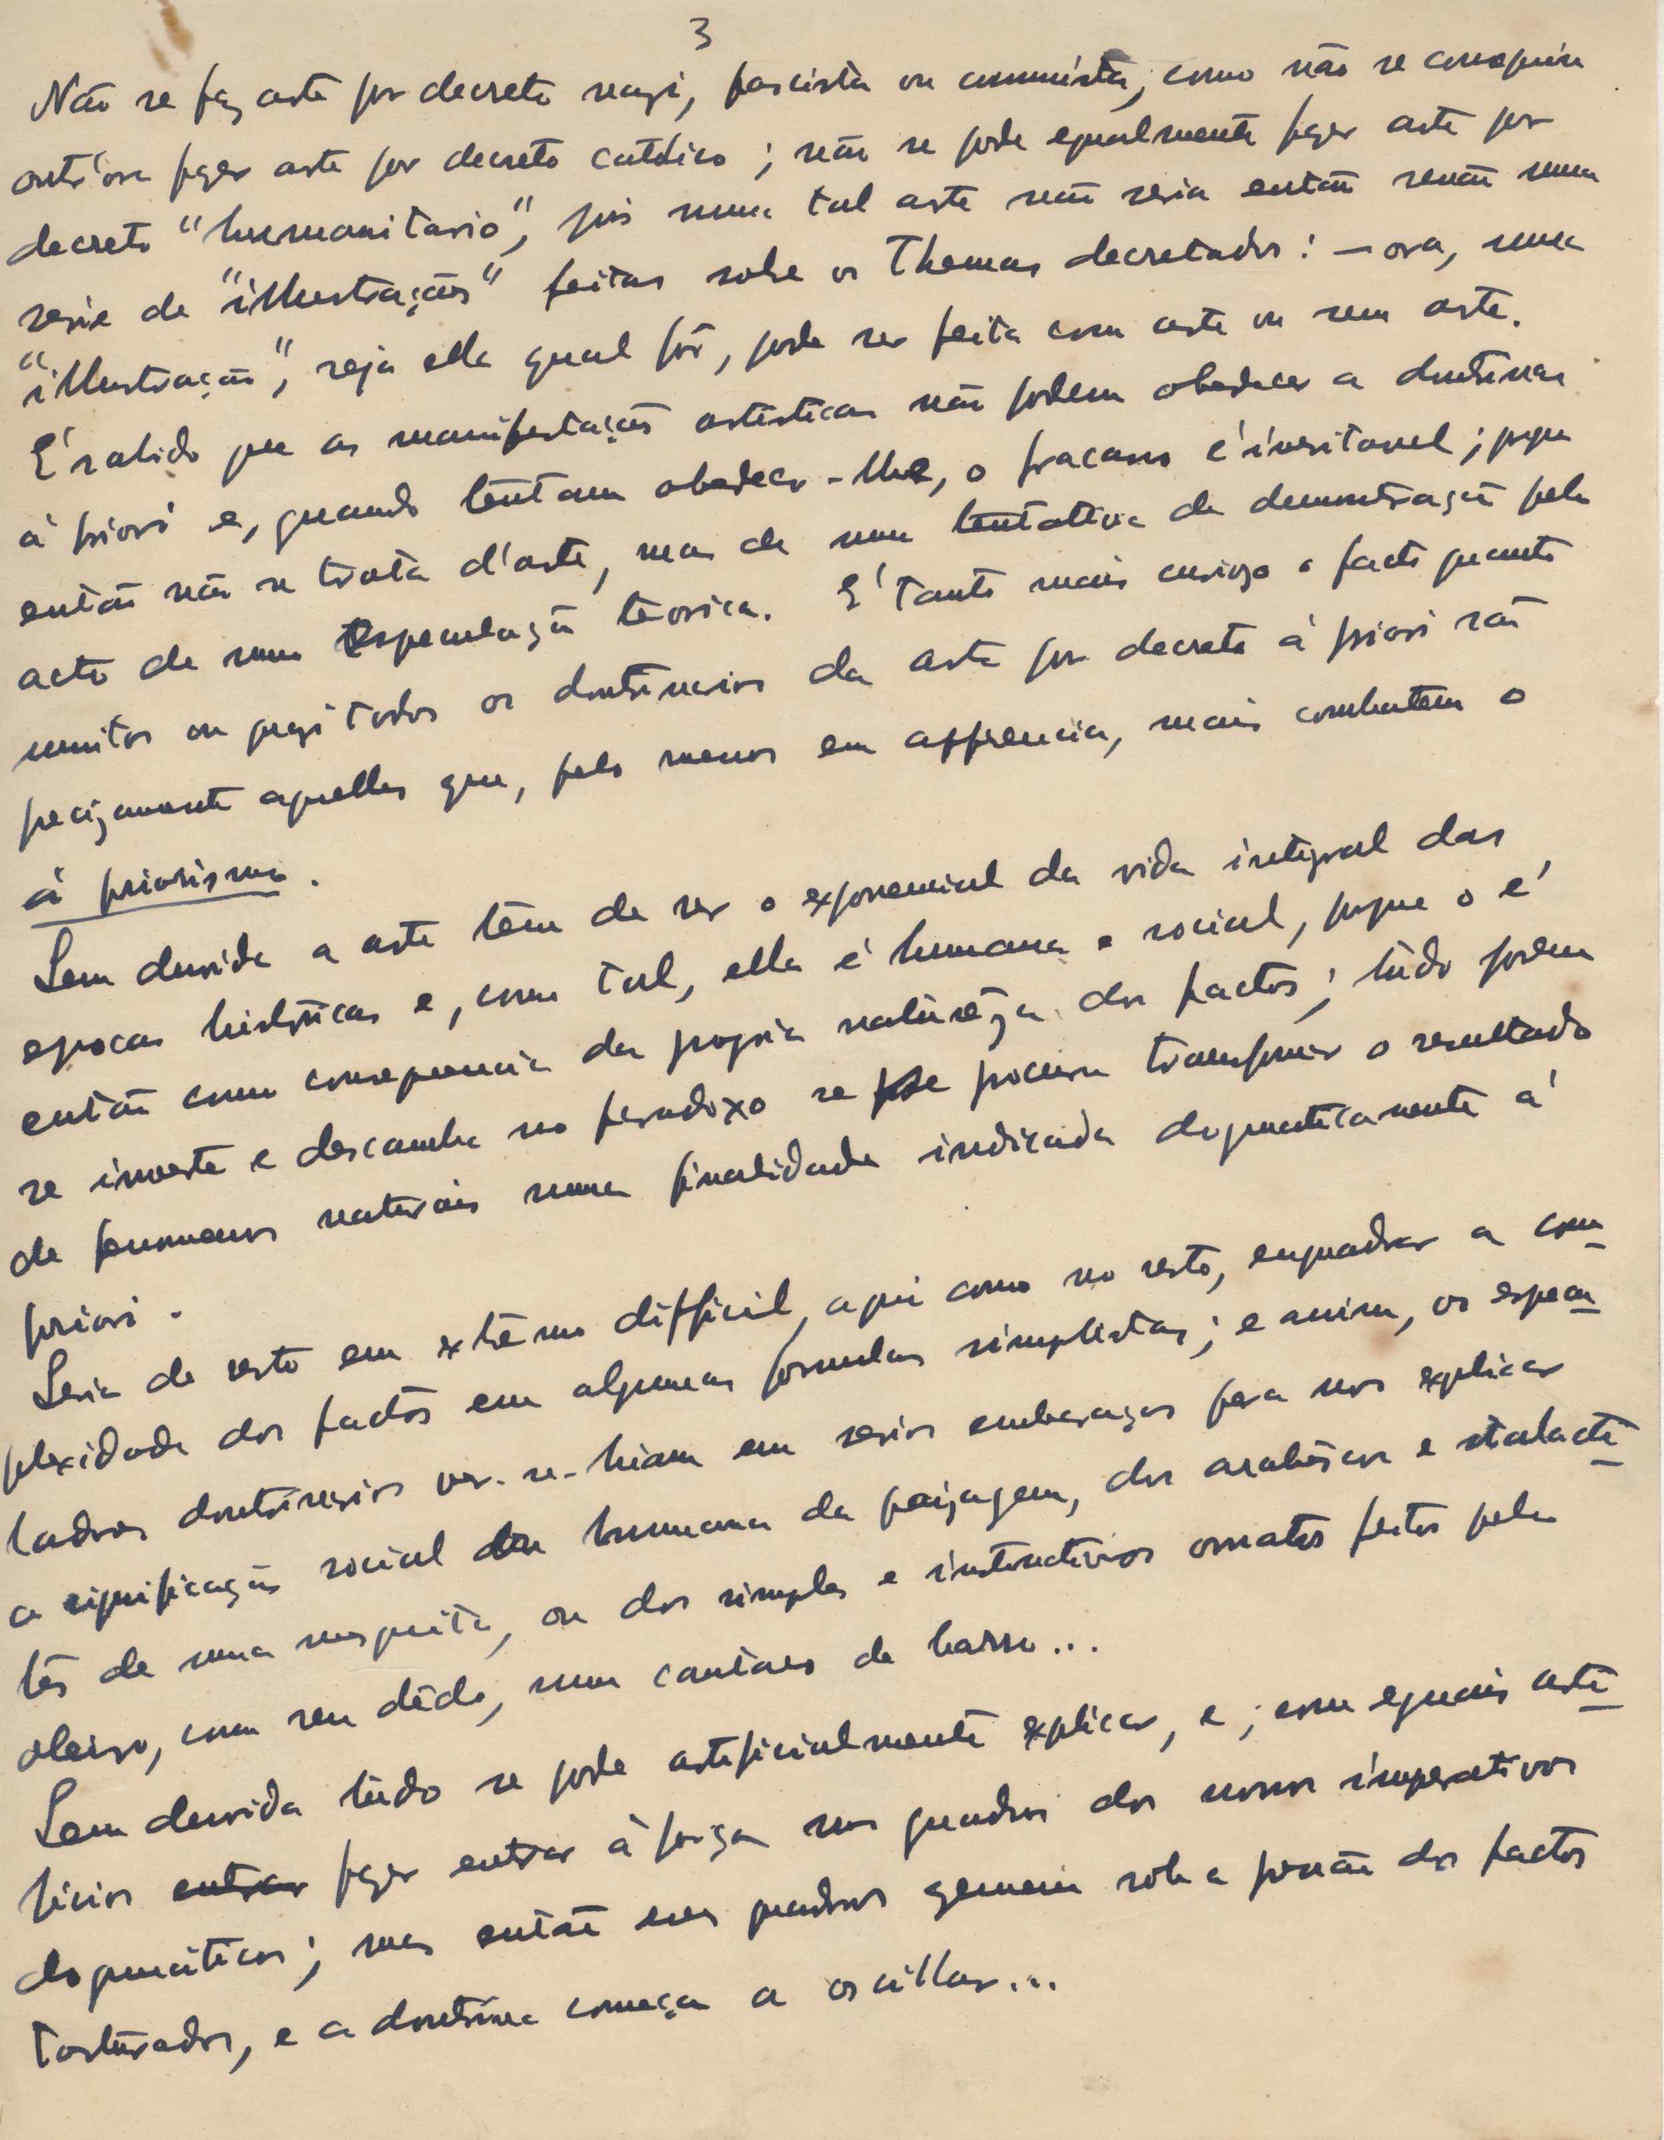 3
Não se faz arte por decreto nazi, fascista ou communista, como não se conseguiu
outr'ora fazer arte por decreto católico; não se pode egualmente fazer arte por
decreto "humanitario", pois numa tal arte não seria então senão uma
serie de "illustrações" feitas sobre os Themas decretados: – ora, uma
"illustração", seja ella qual fôr, pode ser feita com arte ou sem arte.
E' sabido que as manifestações artisticas não podem obedecer a doutrinas
à priori e, quando tentam obedecer-lhe, o fracasso é inevitavel; porque
então não se trata d'arte, mas de uma tentativa de demonstração pelo
acto de uma especulação teorica. E' tanto mais curiozo o facto quanto
muitos ou quazi todos os doutrinarios da arte por decreto à priori são
precizamente aquelles que, pelo menos em apparencia, mais combatem o
à priorismo.
Sem duvida a arte tem de ser o exponencial da vida integral das
epocas históricas e, como tal, ella é humana e social, porque o é
então como consequencia da propria naturêza dos factos; tudo porem
se inverte e descamba no paradoxo se se procura transformar o resultado
de fenomenos naturais numa finalidade indicada dogmaticamente à
priori.
Seria de resto em extrêmo difficil, aqui como no resto, enquadrar a com
plexidade dos factos em algumas formulas simplistas; e assim, os especu
ladores doutrinarios ver-se-hiam em serios embaraços para nos explicar
a significação social ou humana da paizagem, dos arabêscos e stalacti
tes de uma mesquita, ou dos simples e instinctivos ornatos feitos pelo
oleiro, com seu dêdo, num cantaro de barro...
Sem duvida tudo se pode artificialmente explicar, e, com eguais arti
ficios entrar fazer entrar à força nos quadros dos nossos imperativos
dogmáticos; mas então esses quadros gemem sob a pressão dos factos
torturados, e a doutrina começa a oscillar...